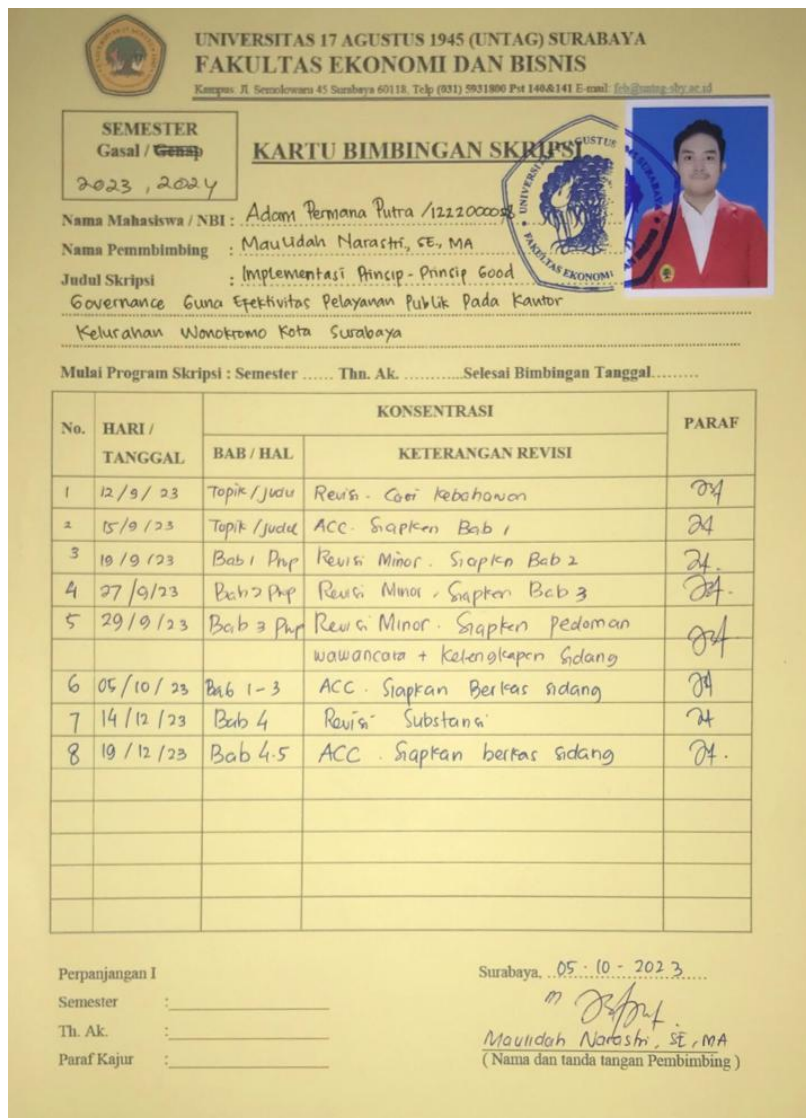 UNIVERSITAS 17 AGUSTUS 1945 (UNTAG) SURABAYA
FAKULTAS EKONOMI DAN BISNIS
Kampus: Jl. Semolowaru 45 Surabaya 60118, Telp (031) 5931800 Pst 140&141 E-mail: feb@untag-sby.ac.id
SEMESTER
Gasal / Genap
2023, 2024
KARTU BIMBINGAN SKRIPSI
FAKULTAS EKONOMI
Nama Mahasiswa / NBI : Adam Permana Putra /1222000058
Nama Pemmbimbing : Maulidah Narastri, SE, MA
Judul Skripsi : Implementasi Prinsip-Prinsip Good
Governance Guna Efektivitas Pelayanan Publik Pada Kantor
Kelurahan Wonokromo Kota Surabaya
Mulai Program Skripsi : Semester ...... Thn. Ak. ...........Selesai Bimbingan Tanggal.........
No. HARI / TANGGAL KONSENTRASI PARAF
BAB / HAL KETERANGAN REVISI
1 12/9/23 Topik/Judu Revisi - Cari kebaharuan
2 15/9/23 Topik/Judul ACC. Siapkan Bab 1
3 19/9/23 Bab 1 Prop Revisi Minor. Siapkn Bab 2
4 27/9/23 Bab 2 Prop Revisi Minor, Siapkan Bab 3
5 29/9/23 Bab 3 Prop Revisi Minor. Siapkan pedoman
wawancara + Kelengkapan Sidang
6 05/10/23 Bab 1-3 ACC. Siapkan Berkas sidang
7 14/12/23 Bab 4 Revisi Substansi
8 19/12/23 Bab 4-5 ACC. Siapkan berkas sidang
Perpanjangan I
Semester :
Th. Ak. :
Paraf Kajur :
Surabaya, 05-10-2023
Maulidah Narastri, SE, MA
( Nama dan tanda tangan Pembimbing )